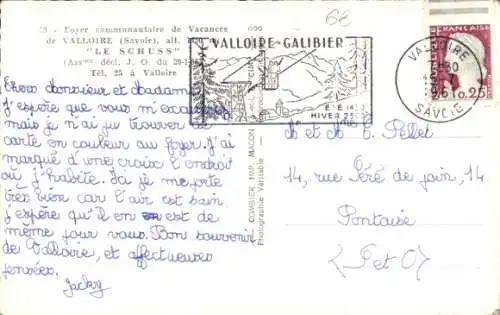 Foyer communautaire de Vacances
de VALLOIRE (Savoie), alt.
"LE SCHUSS"
(Assᵒⁿ décl. J. O. du
Tél. 25 à Valloire
6€
VALLOIRE-GALIBIER
ETE
HIVER
VALLOIRE
SAVOIE
FRANÇAISE
0,25
COMBIER IMP. MACON
Photographie Véritable
Chers Monsieur et Madame
J'espère que vous m'excuserez
mais je n'ai pu trouver de
carte en couleur au foyer. J'ai
marqué d'une croix l'endroit
où j'habite. Ici je me porte
très bien car l'air est sain.
J'espère qu'il en est de
même pour vous. Bon souvenir
de Valloire, et affectueuses
pensées.
Jacky
M et M F. Pellet
14, rue Père de join, 14
Pontoise
(S et O)